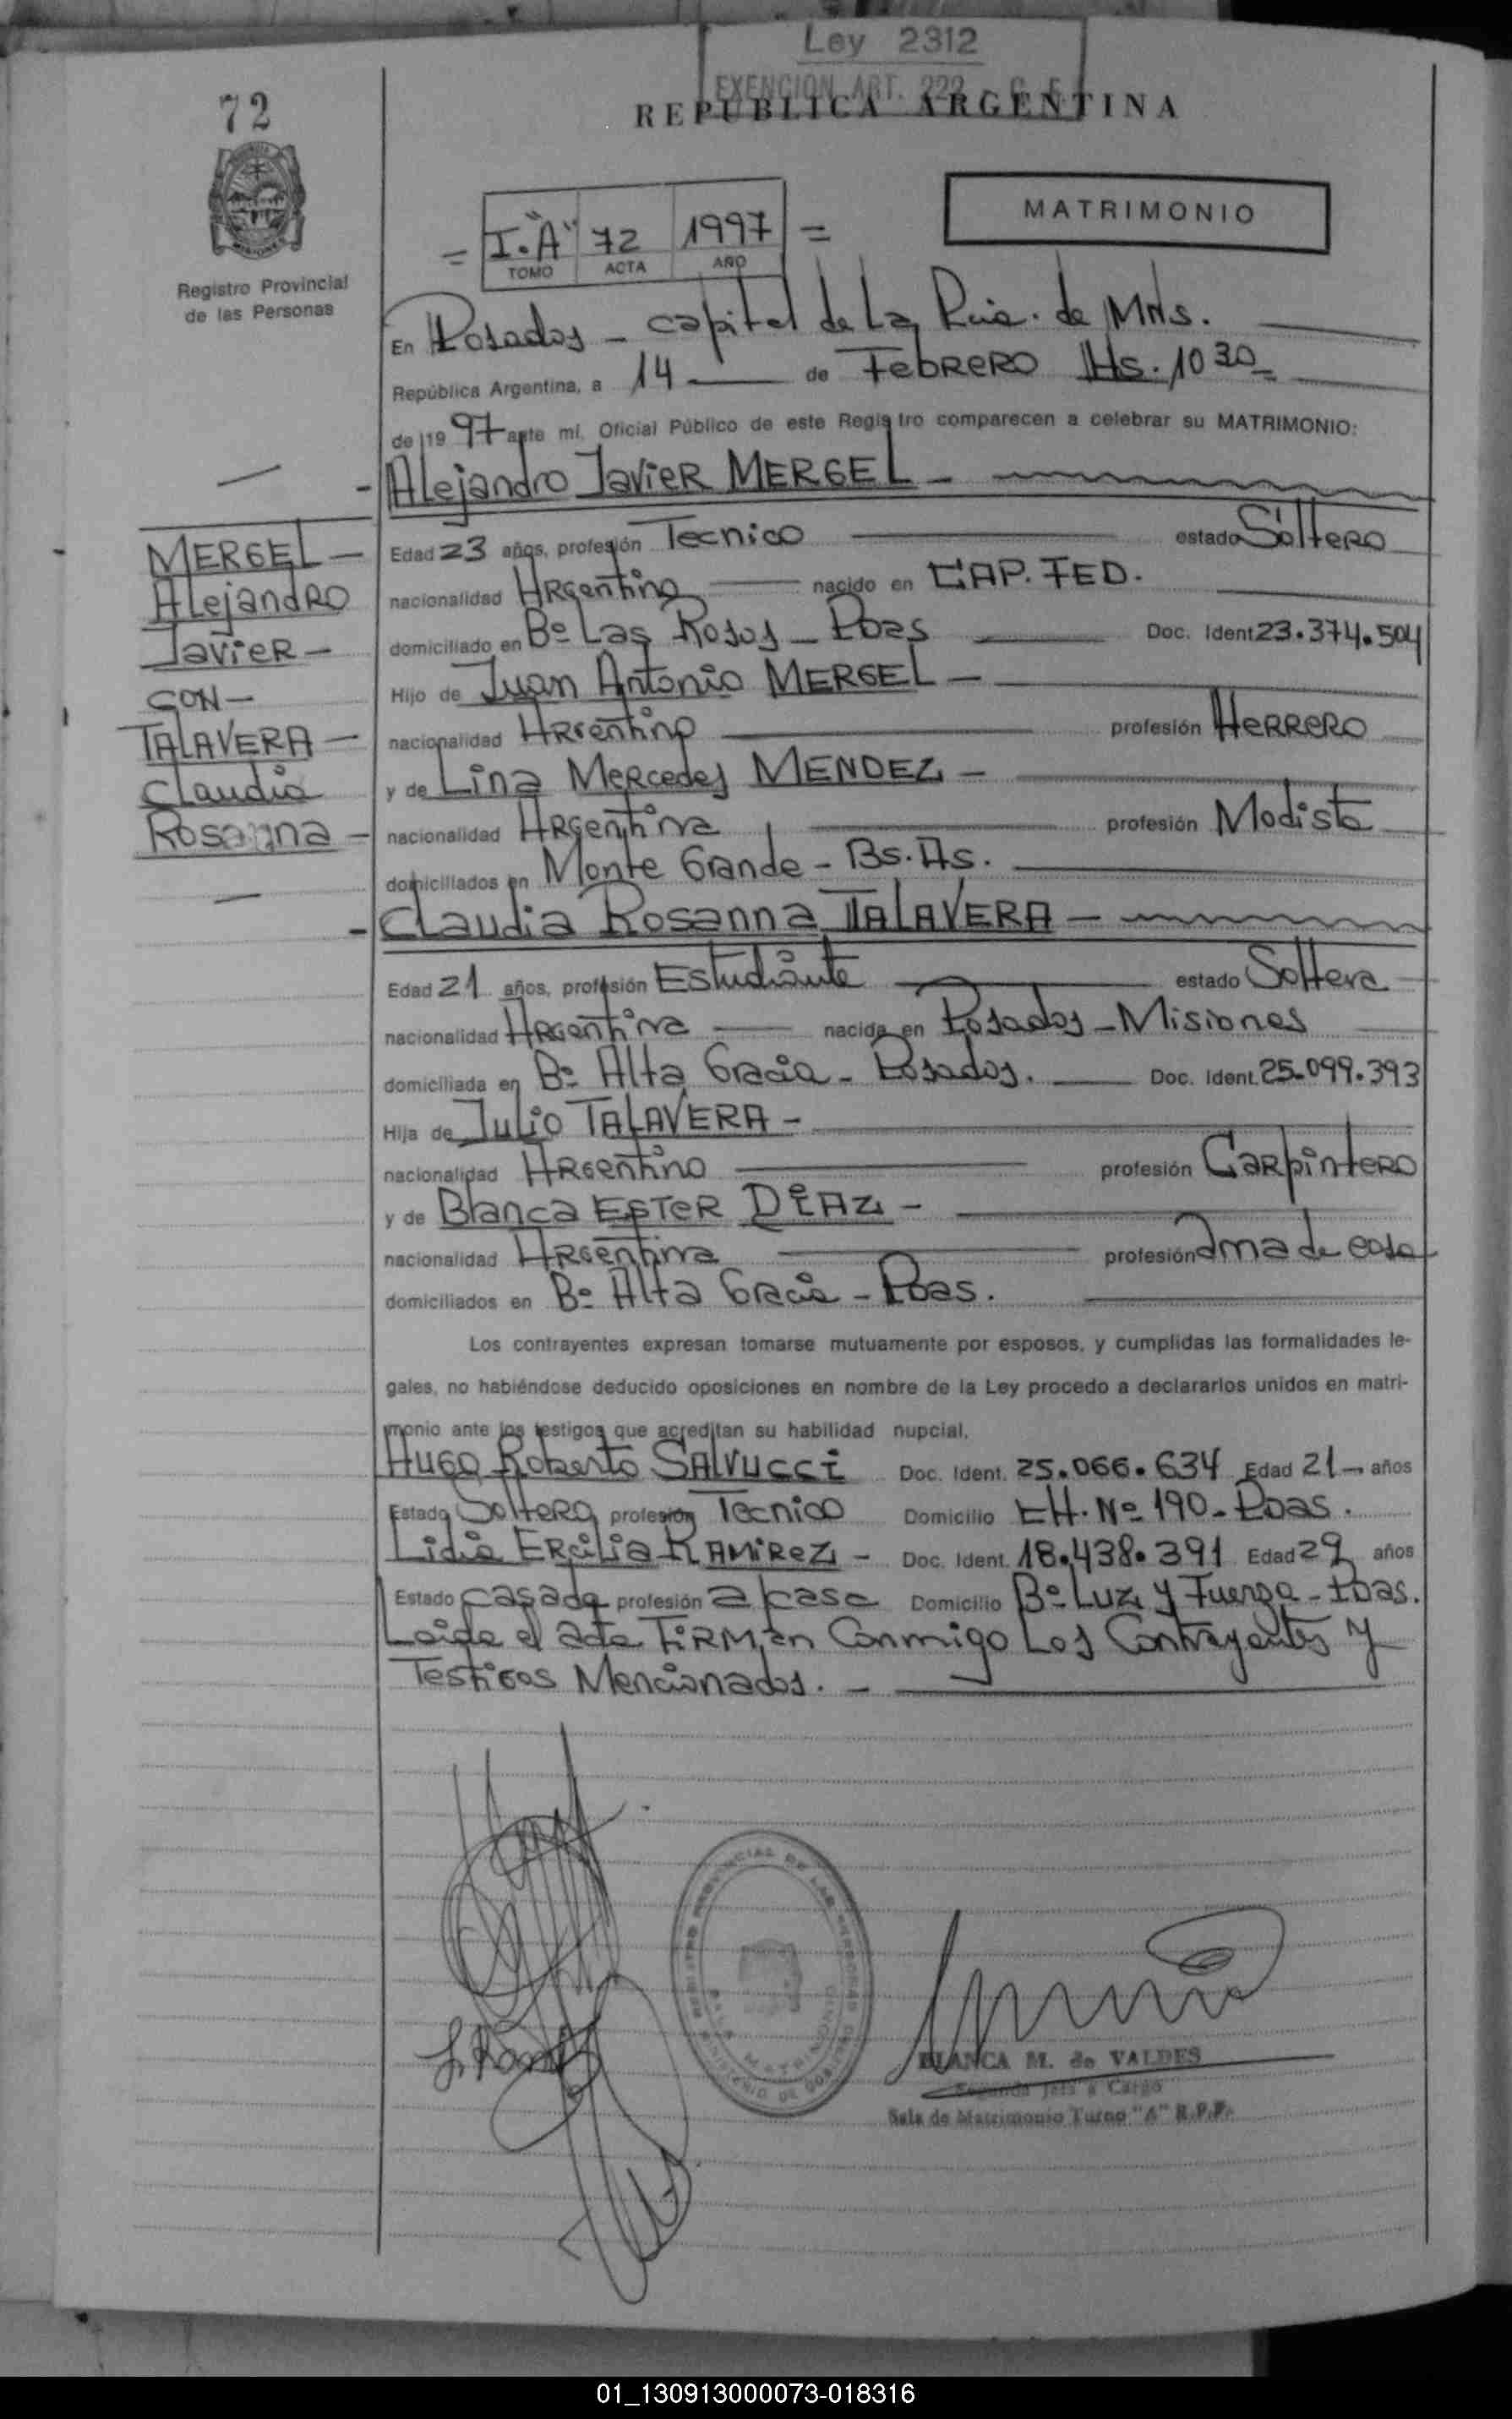 Ley 2312
EXENCION ART. 222 - C. F.
72
REPUBLICA ARGENTINA
MATRIMONIO
= I."A" 72 1997 =
TOMO ACTA AÑO
Registro Provincial
de las Personas
En Posadas - capital de La Pcia. de Mns.
República Argentina, a 14 de Febrero Hs. 10 30
de 19 97 ante mí, Oficial Público de este Registro comparecen a celebrar su MATRIMONIO:
- Alejandro Javier MERGEL -
Edad 23 años, profesión Tecnico estado Soltero
nacionalidad Argentino nacido en CAP. FED.
domiciliado en Bº Las Rosas - Pdas Doc. Ident. 23.374.504
Hijo de Juan Antonio MERGEL -
nacionalidad Argentino profesión Herrero
y de Lina Mercedes MENDEZ -
nacionalidad Argentina profesión Modista
domiciliados en Monte Grande - Bs. As.
MERGEL -
Alejandro
Javier -
CON -
TALAVERA -
Claudia
Rosanna -
- Claudia Rosanna TALAVERA -
Edad 21 años, profesión Estudiante estado Soltera
nacionalidad Argentina nacida en Posadas - Misiones
domiciliada en Bº Alta Gracia - Posadas. Doc. Ident. 25.099.393
Hija de Julio TALAVERA -
nacionalidad Argentino profesión Carpintero
y de Blanca Ester DIAZ -
nacionalidad Argentina profesión ama de casa
domiciliados en Bº Alta Gracia - Pdas.
Los contrayentes expresan tomarse mutuamente por esposos, y cumplidas las formalidades le-
gales, no habiéndose deducido oposiciones en nombre de la Ley procedo a declararlos unidos en matri-
monio ante los testigos que acreditan su habilidad nupcial,
Hugo Roberto SALVUCCI Doc. Ident. 25.066.634 Edad 21 - años
Estado Soltero profesión Tecnico Domicilio CH. Nº 190 - Pdas.
Lidia Ercilia RAMIREZ - Doc. Ident. 18.438.391 Edad 29 años
Estado Casada profesión a/casa Domicilio Bº Luz y Fuerza - Pdas.
Leida el acta FIRMan Conmigo Los Contrayentes y
Testigos Mencionados. -
REGISTRO PROVINCIAL DE LAS PERSONAS
MINISTERIO DE GOBIERNO
SALA MATRIMONIO
BLANCA M. de VALDES
Segunda Jefa a Cargo
Sala de Matrimonio Turno "A" R.P.P.
01_130913000073-018316